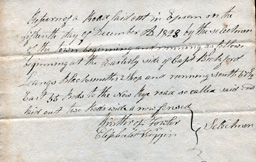 Report of a Road laid out in Epsom on the
fifteenth day of December AD 1828 by the selectmen
of the town beginning and running as follows
beginning at the Easterly side of Capt
Blacksmiths Shop and running South 65°
East 35 Rods to the New Rye road so called said road
laid out two Rods wide
Winthrop Fowler
Selectmen